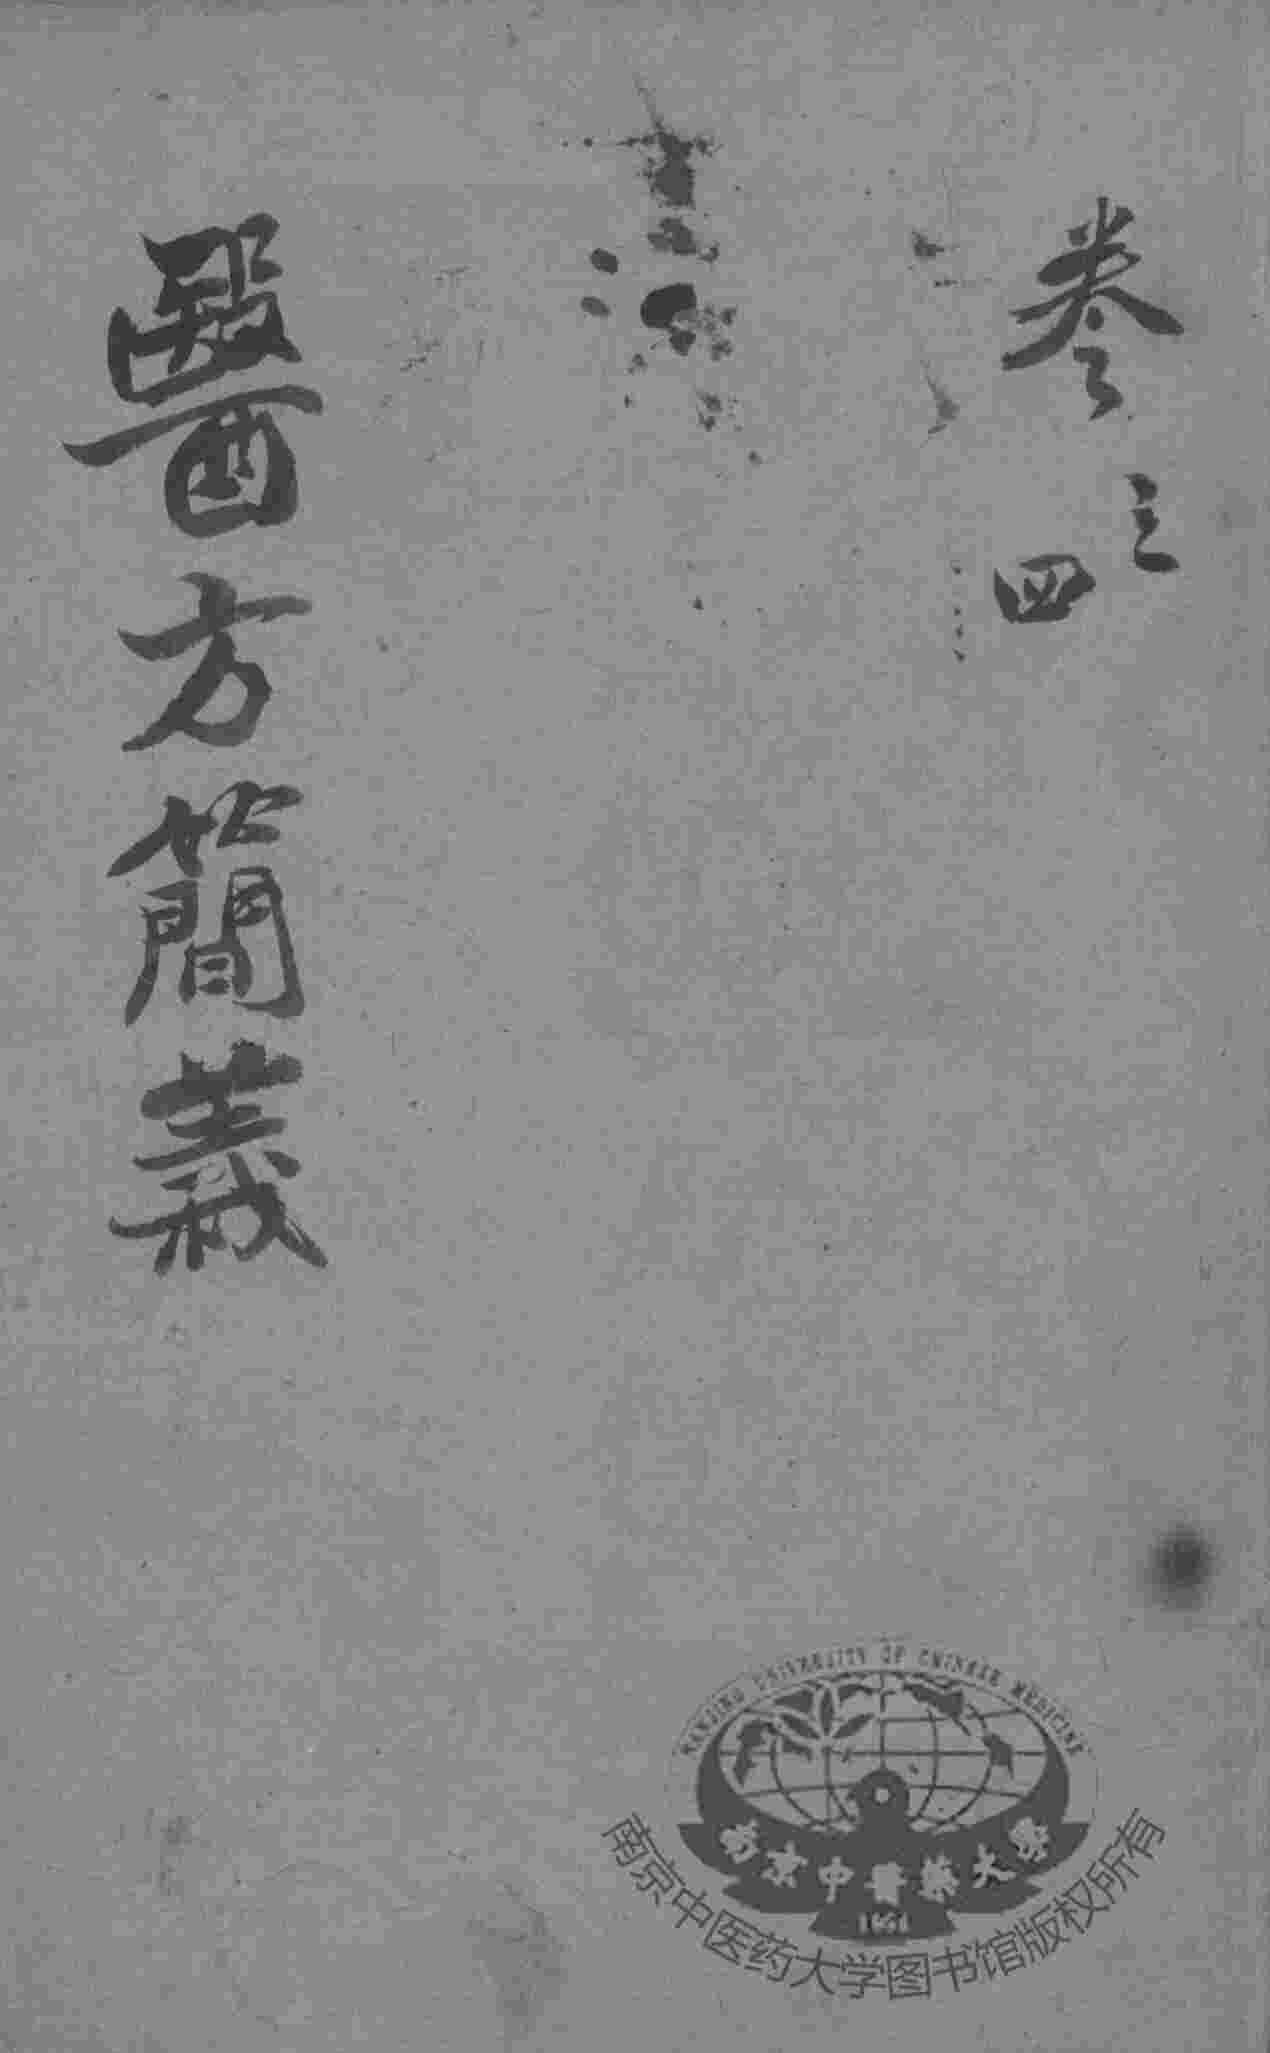 卷三
四
醫方簡義
NANJING UNIVERSITY OF CHINESE MEDICINE
南京中醫藥大學
南京中医药大学图书馆版权所有